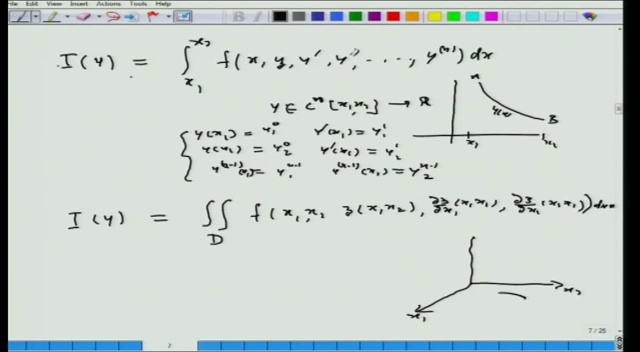 File Edit View Insert Actions Tools Help
I(y) = ∫_{x_1}^{x_2} f(x, y, y', y'', ....., y^{(n)}) dx
y ∈ C^n [x_1, x_2] → ℝ
y(x_1) = y_1^0 y'(x_1) = y_1^1
y(x_2) = y_2^0 y'(x_2) = y_2^1
y^{(n-1)}(x_1) = y_1^{n-1} y^{(n-1)}(x_2) = y_2^{n-1}
A
y(x)
B
x_1 x_2
I(y) = ∬_D f(x_1, x_2 z(x_1 x_2), ∂z/∂x_1 (x_1 x_2), ∂z/∂x_2 (x_1 x_2)) dx
x_2
x_1
7 / 25
7